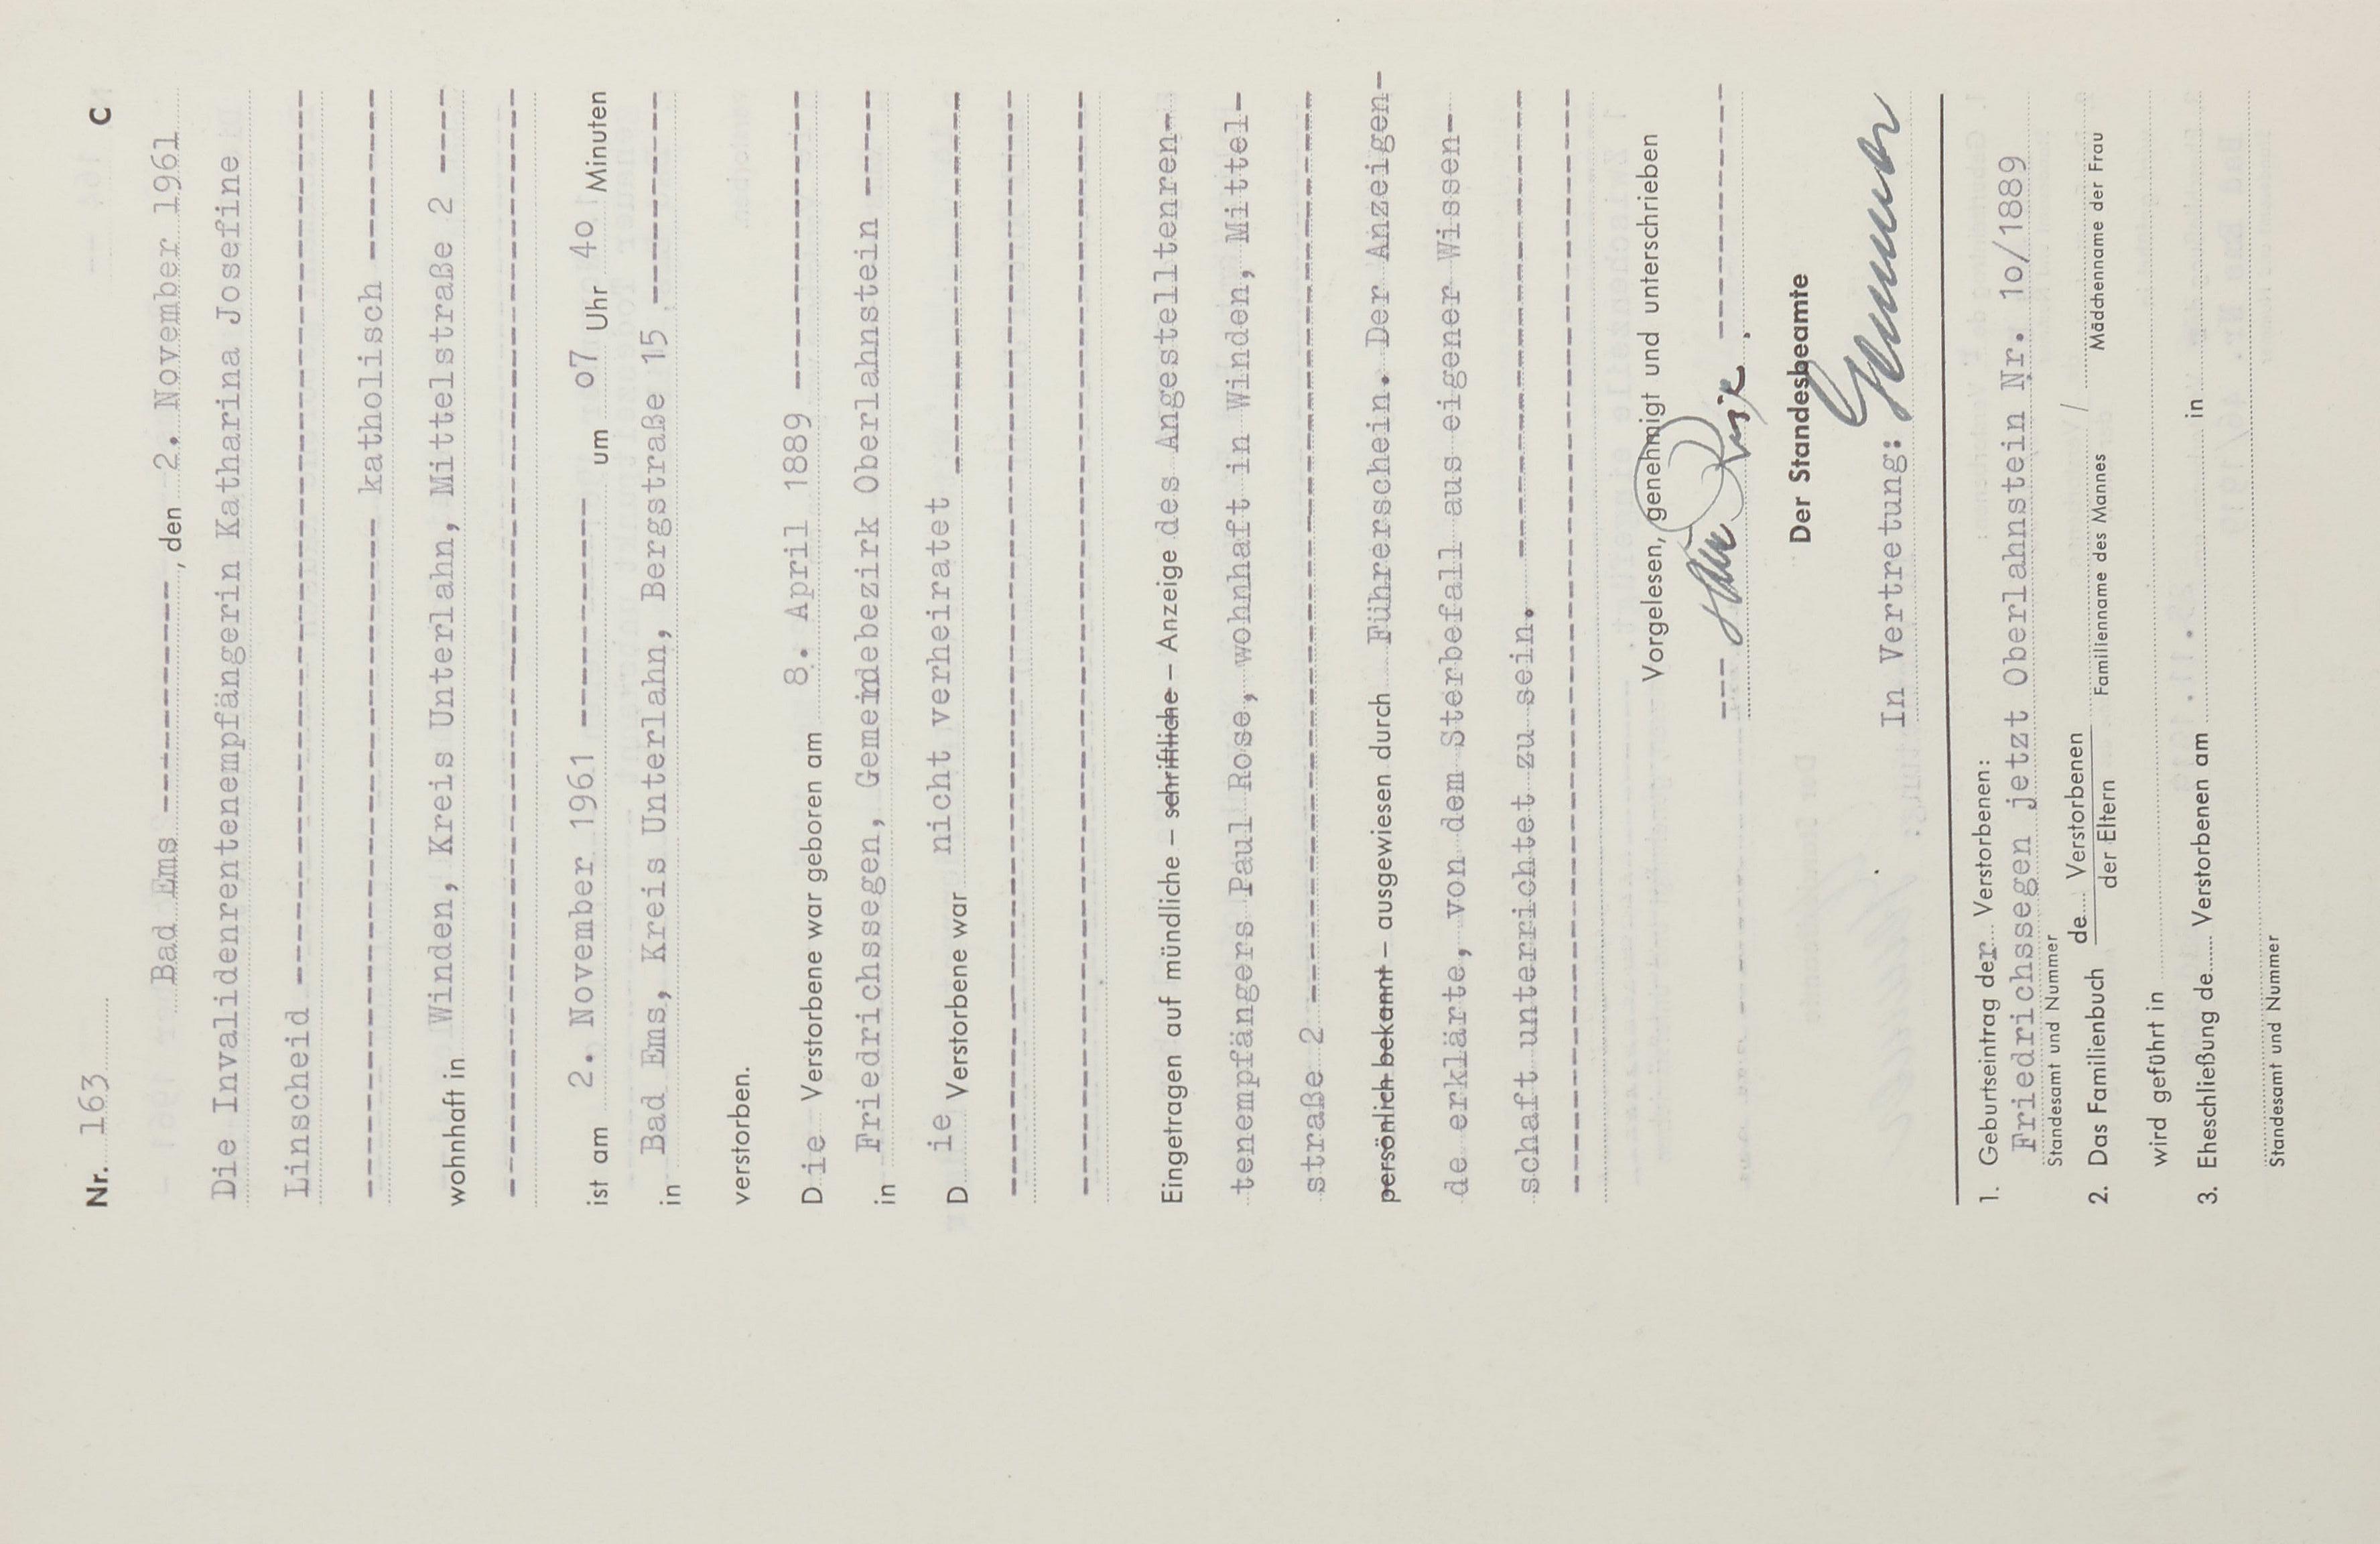 Nr. 163 C
Bad Ems ----------, den 2. November 1961
Die Invalidenrentenempfängerin Katharina Josefine
Linscheid ----------
---------- katholisch ----------
wohnhaft in Winden, Kreis Unterlahn, Mittelstraße 2 ----
----------
ist am 2. November 1961 ---------- um o7 Uhr 4o Minuten
in Bad Ems, Kreis Unterlahn, Bergstraße 15 ----------
verstorben.
Die Verstorbene war geboren am 8. April 1889 ----------
in Friedrichssegen, Gemeindebezirk Oberlahnstein -----
Die Verstorbene war nicht verheiratet ----------
----------
----------
Eingetragen auf mündliche – schriftliche – Anzeige des Angestelltenren-
tenempfängers Paul Rose, wohnhaft in Winden, Mittel-
straße 2 ----------
persönlich bekannt – ausgewiesen durch Führerschein. Der Anzeigen-
de erklärte, von dem Sterbefall aus eigener Wissen-
schaft unterrichtet zu sein. ----------
----------
Vorgelesen, genehmigt und unterschrieben
--- ----------
Der Standesbeamte
In Vertretung:
1. Geburtseintrag der Verstorbenen:
Friedrichssegen jetzt Oberlahnstein Nr. 1o/1889
Standesamt und Nummer
2. Das Familienbuch de.... Verstorbenen / der Eltern /
Familienname des Mannes Mädchenname der Frau
wird geführt in
3. Eheschließung de...... Verstorbenen am in
Standesamt und Nummer